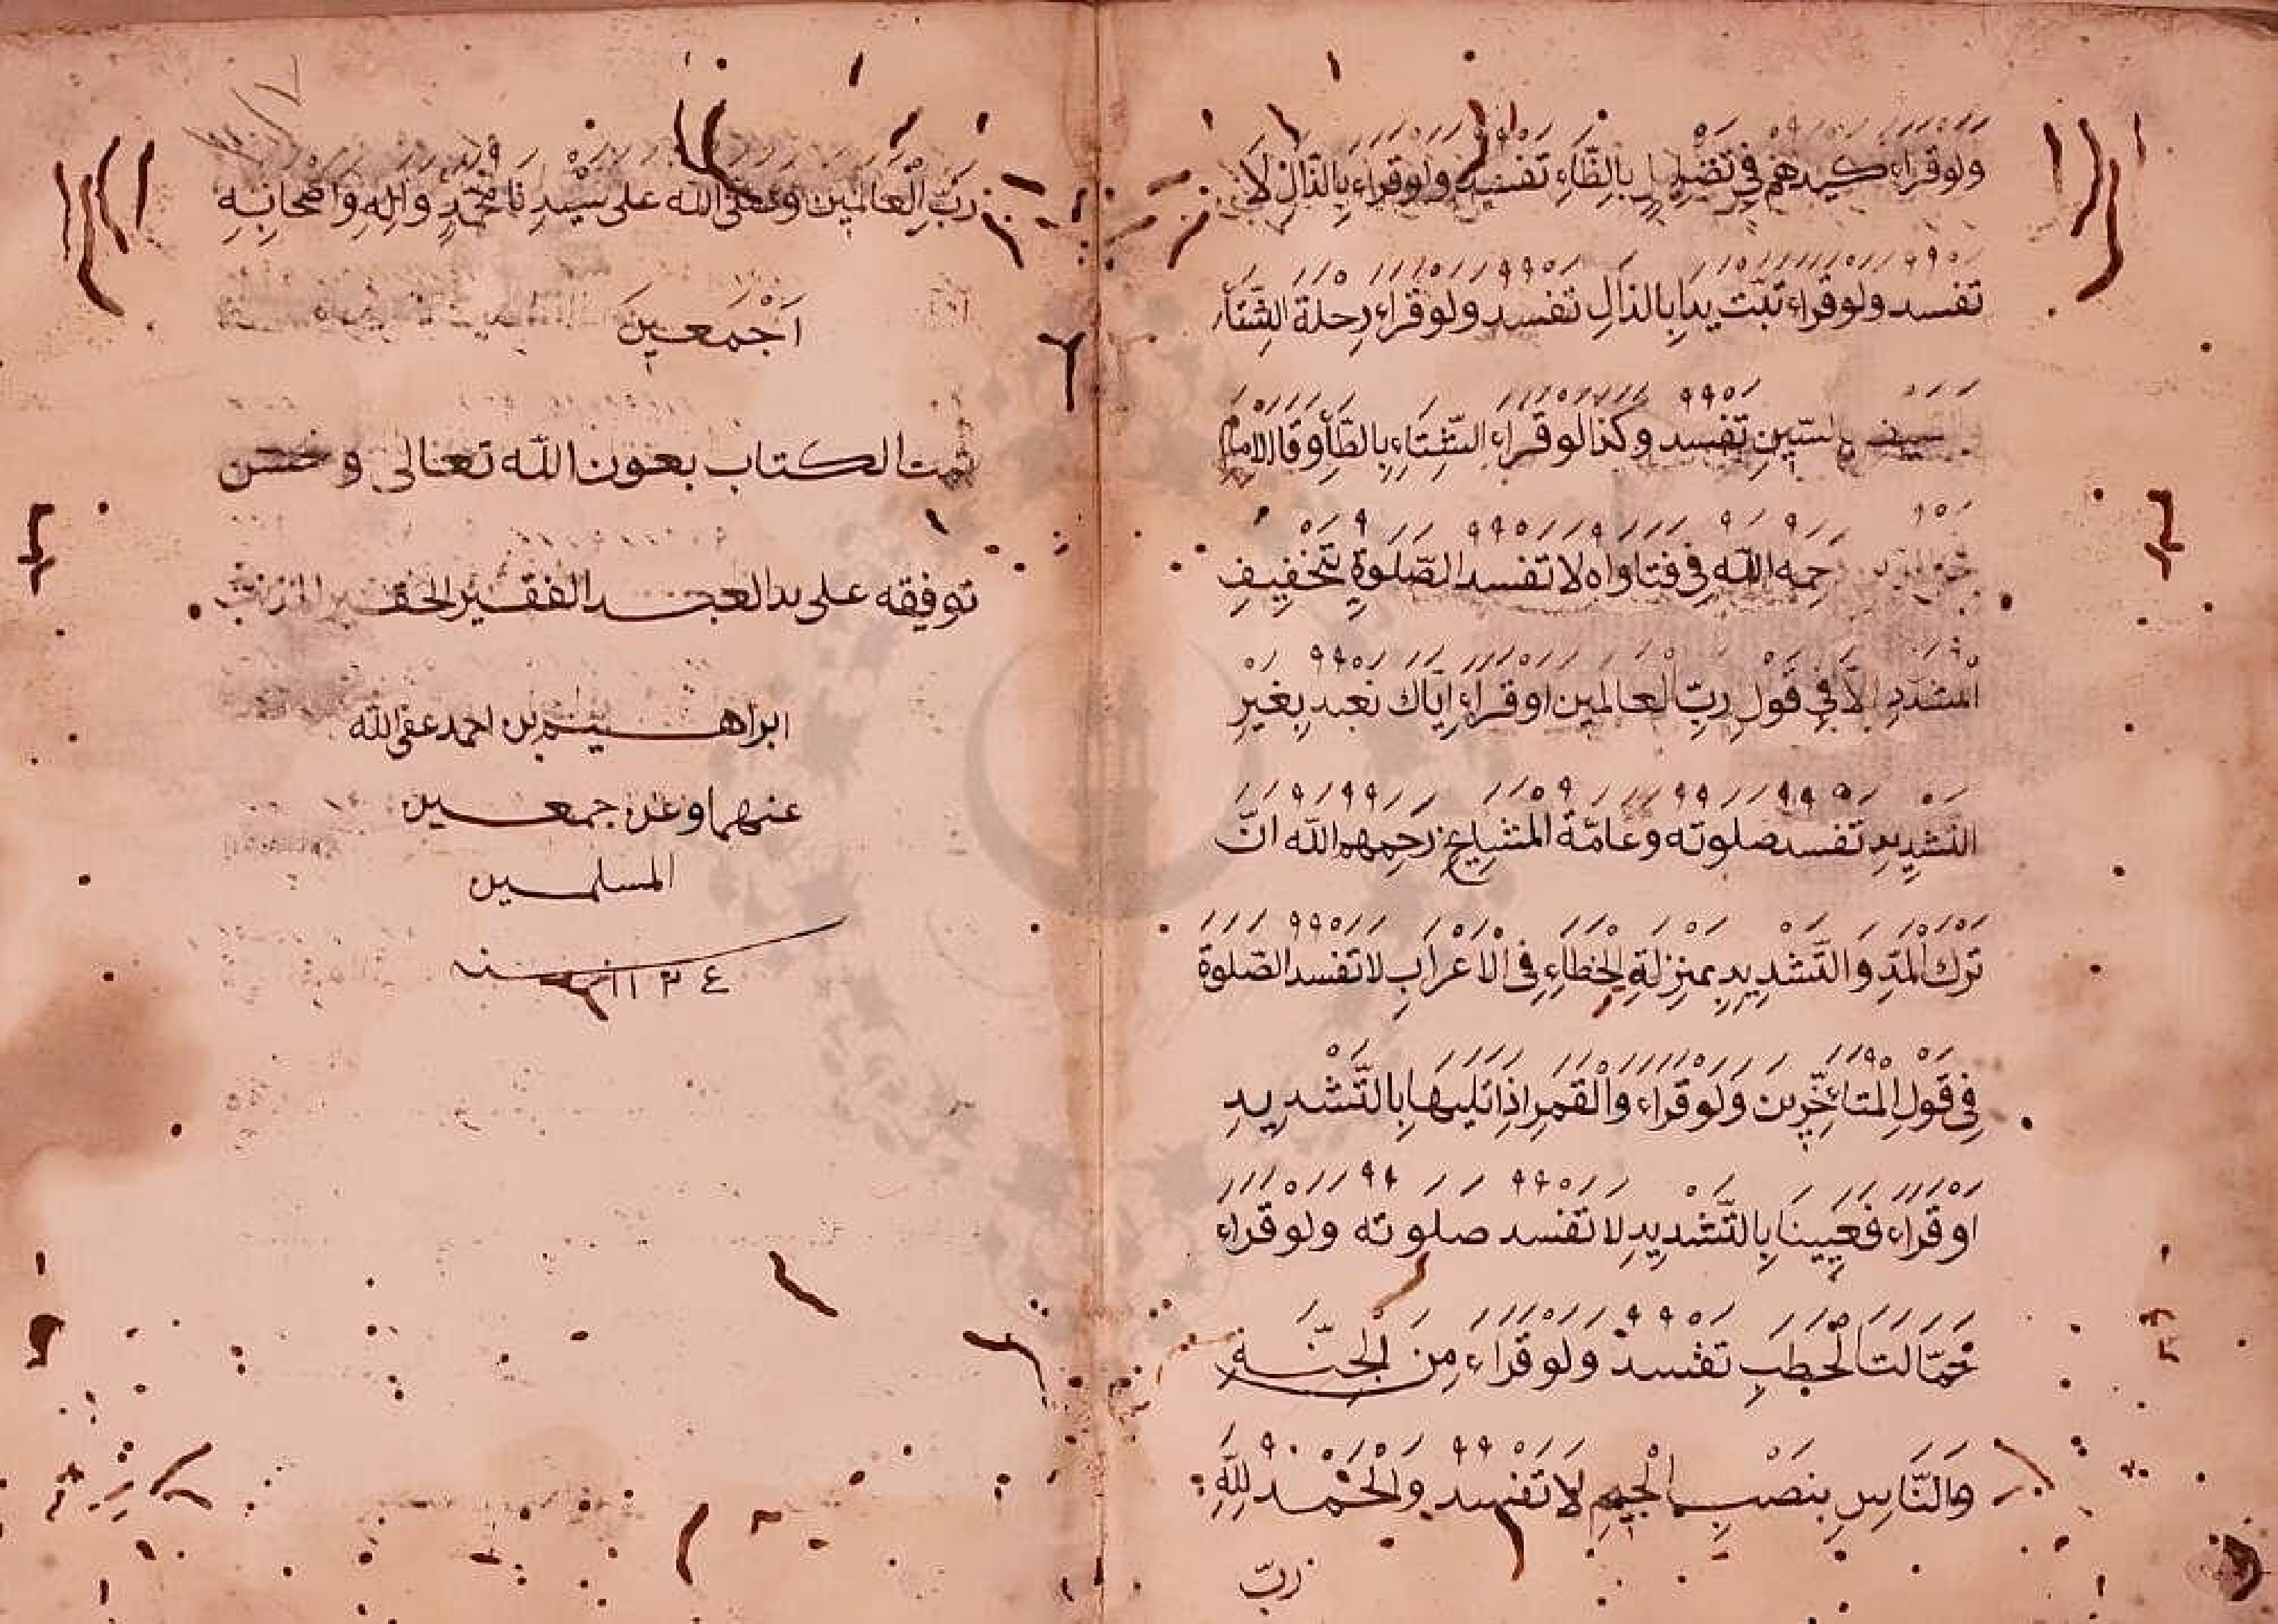 ولو قراء كيدهم في تضليل بالظاء تفسد ولو قراء بالذال لا
تفسد ولو قراء تبت يدا بالذال تفسد ولو قراء رحلة الشتاء
والسين تفسد وكذا لو قراء الشتاء بالطاء وقال الامام
رحمه الله في فتاواه لا تفسد الصلوة بتخفيف
المشدد الا في قول رب العالمين او قراء اياك نعبد بغير
التشديد تفسد صلوته وعامة المشايخ رحمهم الله ان
ترك المد والتشديد بمنزلة الخطاء في الاعراب لا تفسد الصلوة
في قول المتاءخرين ولو قراء والقمر اذا تليها بالتشديد
او قراء فعيينا بالتشديد لا تفسد صلوته ولو قراء
حمالت الحطب تفسد ولو قراء من الجنة
والناس بنصب الجيم لا تفسد والحمد لله
رب
رب العالمين وصلى الله على سيدنا محمد واله واصحابه
اجمعين
تمت الكتاب بعون الله تعالى وحسن
توفيقه على يد العبد الفقير الحقير المذنب
ابراهيم بن احمد عفى الله
عنهما وعن جمعين
المسلمين
سنه ١١٣٤